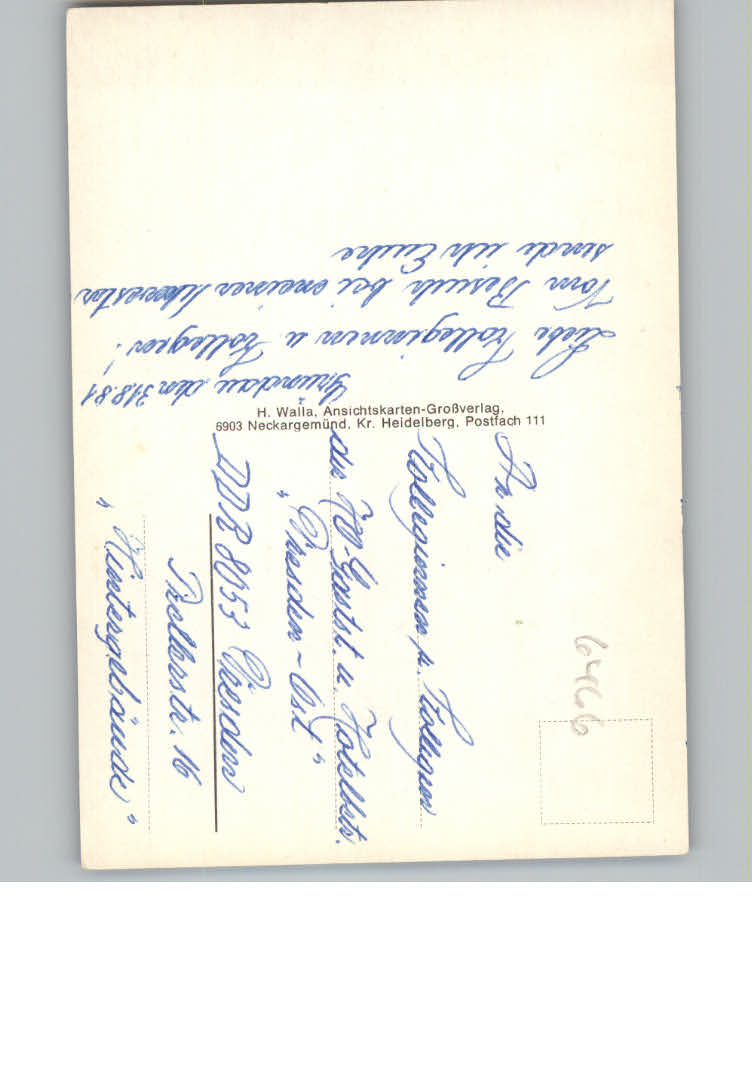 Grundau, den 31.8.81
Liebe Kolleginnen u. Kollegen!
Vom Besuch bei meiner Schwester
sende ich Euch
H. Walla, Ansichtskarten-Großverlag,
6903 Neckargemünd, Kr. Heidelberg, Postfach 111
An die
Kolleginnen u. Kollegen
der HO-Gastst. u. Hotelbetr.
"Dresden-Ost"
DDR 8053 Dresden
Prellerstr. 16
"Hintergebäude"
60466